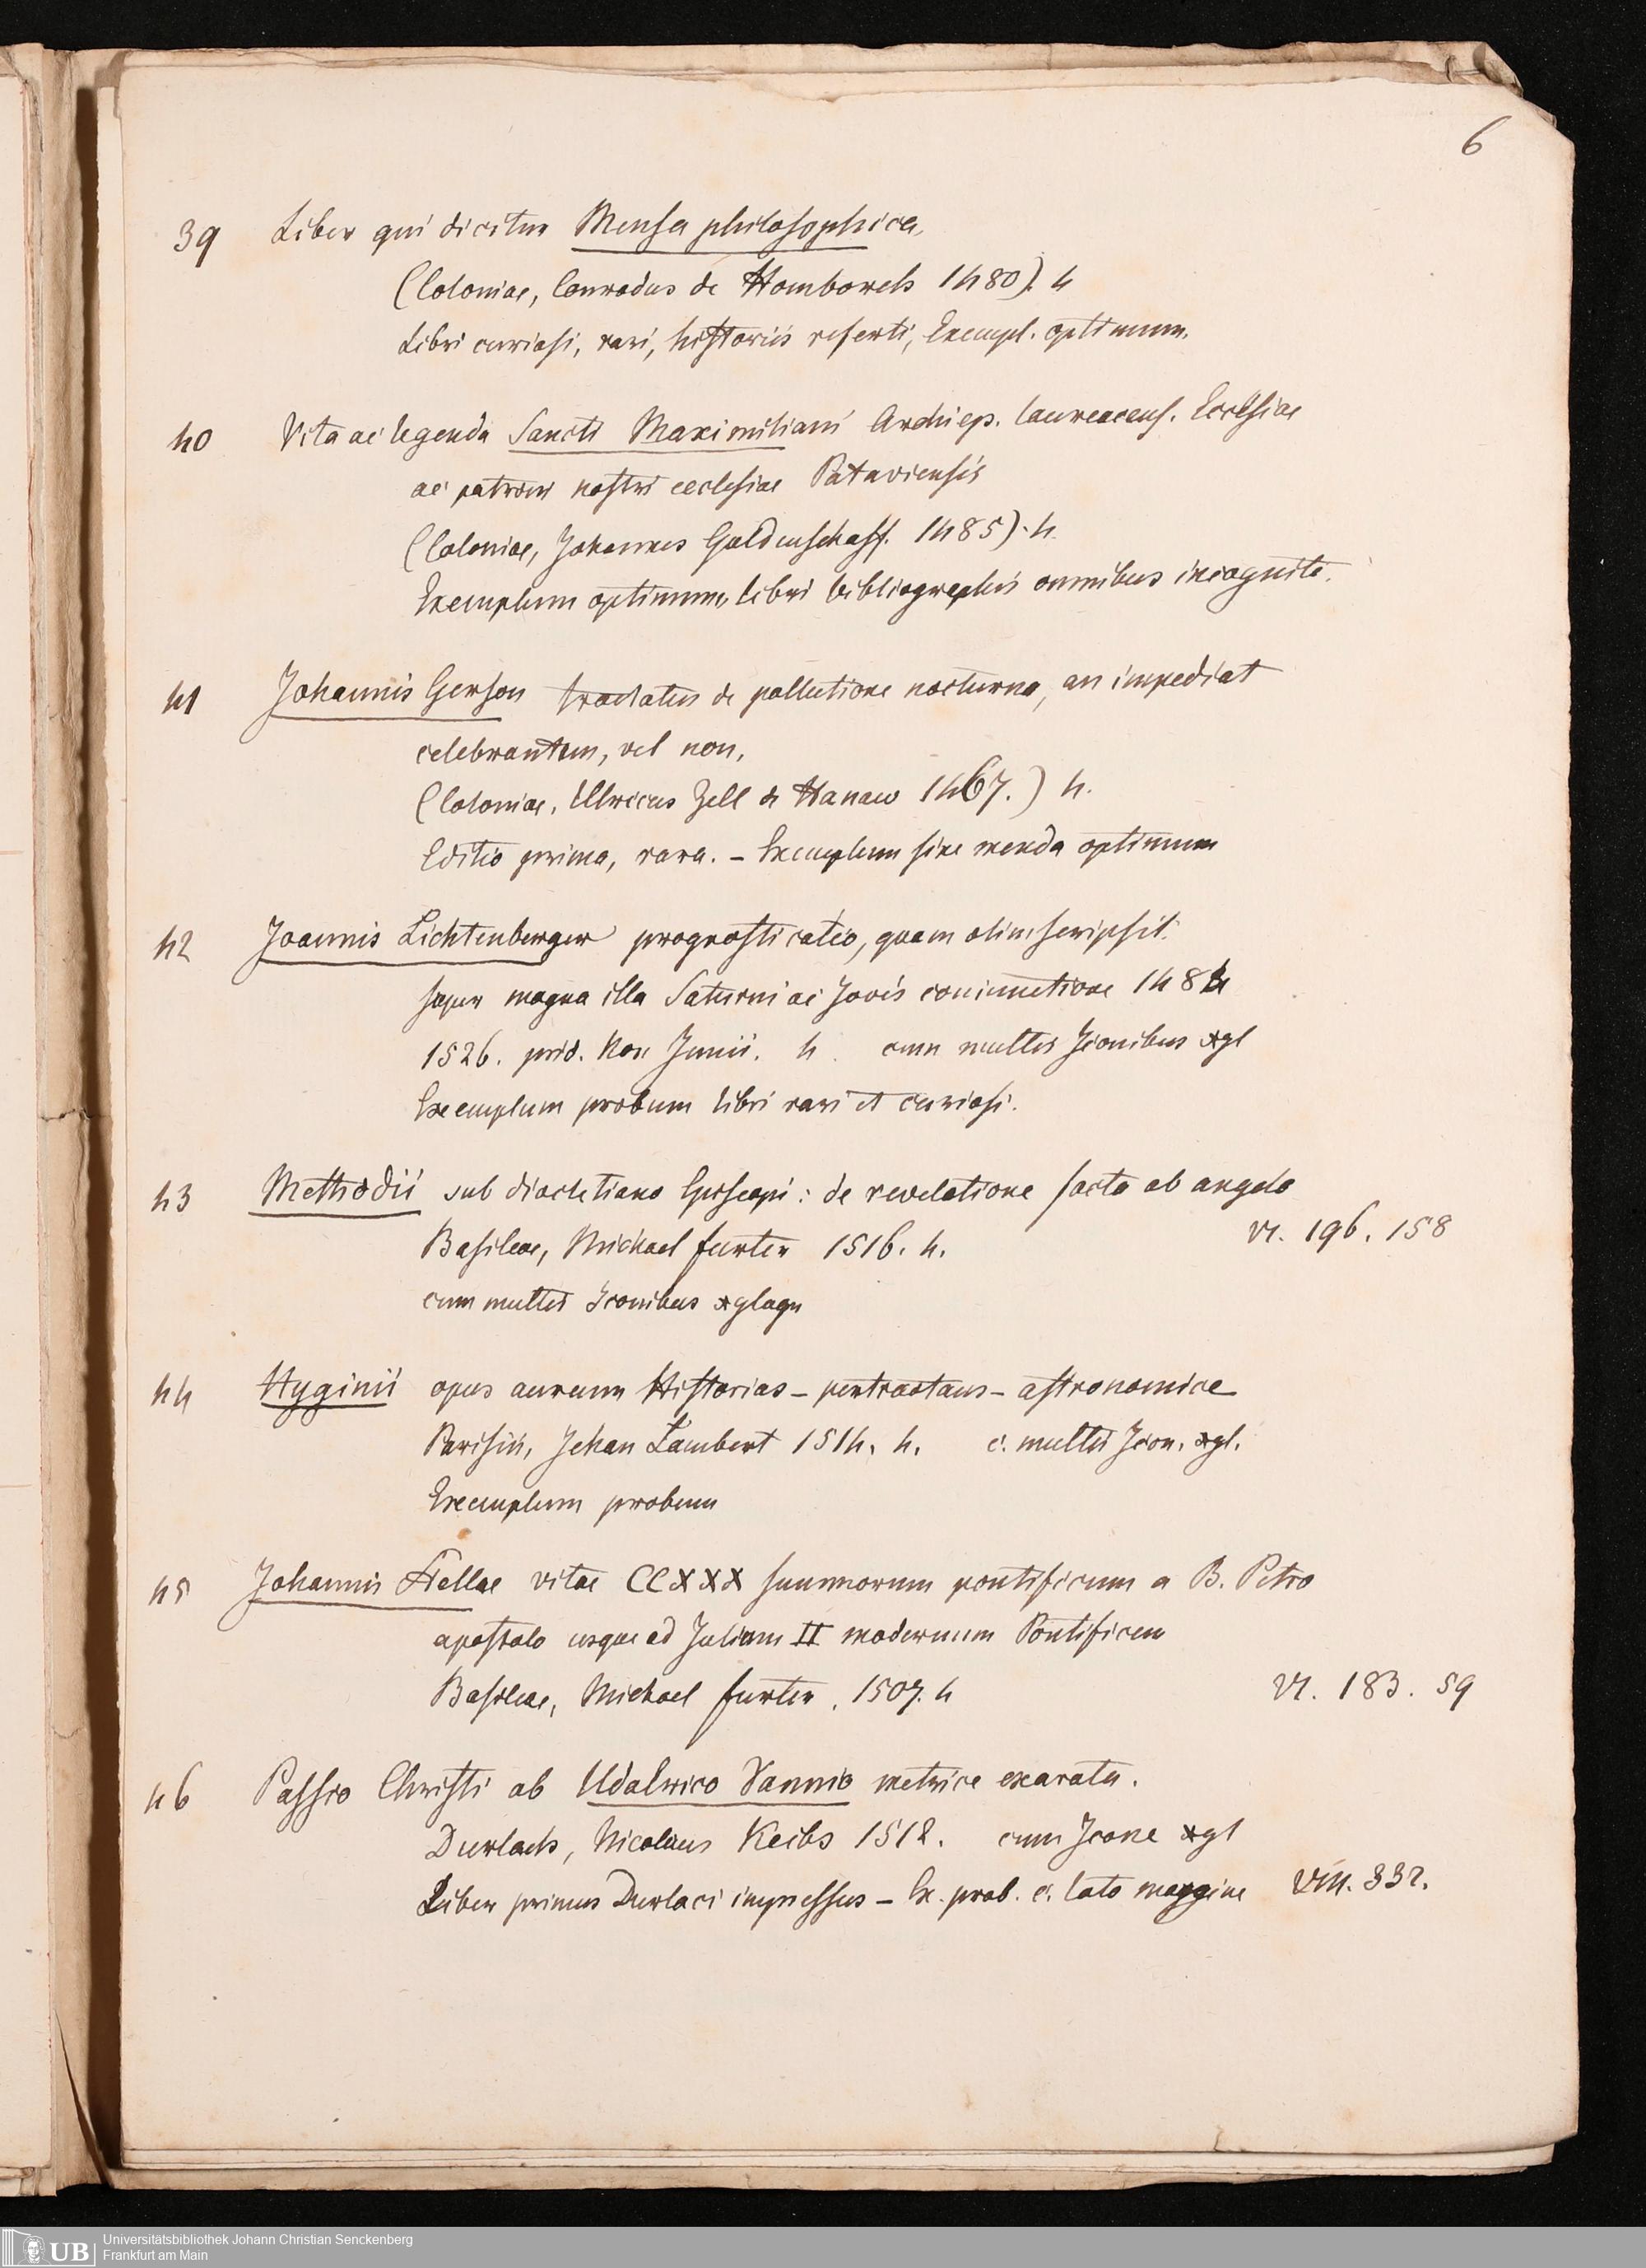 6
39 Liber qui dicitur Mensa philosophica,
(Coloniae, Conradus de Homborch 1480). 4
Libri curiosi, rari, historiis referti, Exempl. optimum.
40 Vita ac legenda Sancti Maximiliani Archiep. laureacens. Ecclesiae
ac patroni nostri ecclesiae Pataviensis
(Coloniae, Johannes Guldenschaff. 1485). 4.
Exemplum optimum, libri bibliographis omnibus incogniti.
41 Johannis Gerson tractatus de pollutione nocturna, an impediat
celebrantem, vel non,
(Coloniae, Ulricus Zell de Hanau 1467.) 4.
Editio prima, rara. – Exemplum sine menda optimum
42 Joannis Lichtenberger prognosticatio, quam olim scripsit
super magna illa Saturni ac Jovis coniunctione 1484
1526. prid. Non Junii. 4. cum multis Iconibus xgl
Exemplum probum libri rari et curiosi.
43 Methodii sub diocletiano Episcopi: de revelatione facta ab angelo
Basileae, Michael furter 1516. 4. VI. 196. 158
cum multis Iconibus xglagr
44 Hyginii opus aureum Historias – pertractans – astronomice
Parisiis, Jehan Lambert 1514. 4. c. multis Icon. xgl.
Exemplum probum
45 Johannis Stellae vitae CCXXX summorum pontificum a B. Petro
apostolo usque ad Julium II modernum Pontificem
Basileae, Michael furter, 1507. 4 VI. 183. 59
46 Passio Christi ab Udalrico Vannio metrice exarata.
Durlach, Nicolaus Keibs 1512. cum Icone xgl
Liber primus Durlaci impressus – Ex. prob. c. lato margine VIII. 332.
UB Universitätsbibliothek Johann Christian Senckenberg
Frankfurt am Main